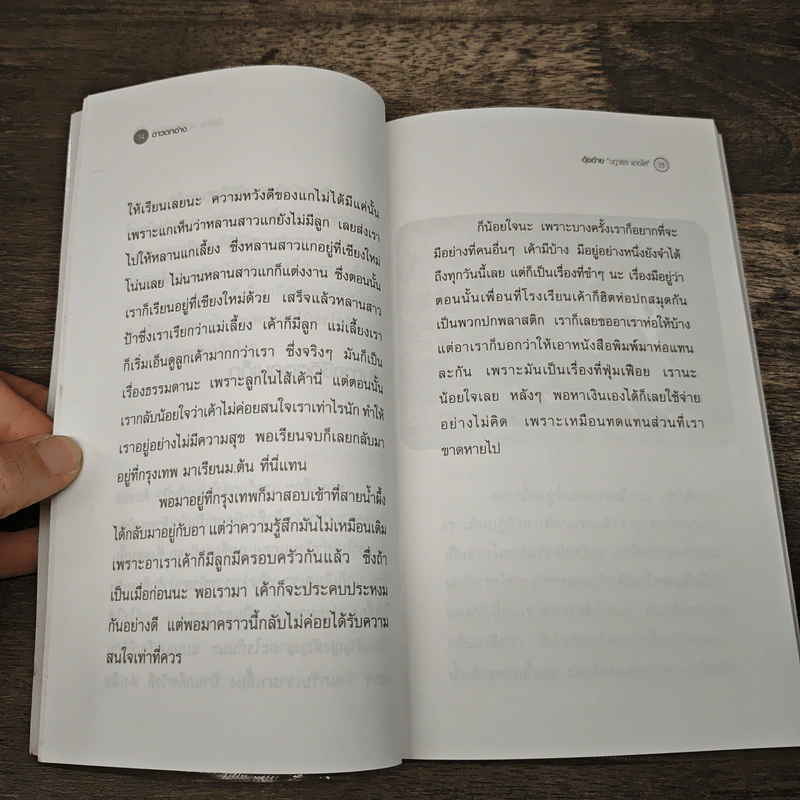 34 ดาวตกอ่าง
ให้เรียนเลยนะ ความหวังดีของแกไม่ได้มีแค่นั้น
เพราะแกเห็นว่าหลานสาวแกยังไม่มีลูก เลยส่งเรา
ไปให้หลานแกเลี้ยง ซึ่งหลานสาวแกอยู่ที่เชียงใหม่
โน่นเลย ไม่นานหลานสาวแกก็แต่งงาน ซึ่งตอนนั้น
เราก็เรียนอยู่ที่เชียงใหม่ด้วย เสร็จแล้วหลานสาว
ป้าซึ่งเราเรียกว่าแม่เลี้ยง เค้าก็มีลูก แม่เลี้ยงเรา
ก็เริ่มเอ็นดูลูกเค้ามากกว่าเรา ซึ่งจริงๆ มันก็เป็น
เรื่องธรรมดานะ เพราะลูกในไส้เค้านี่ แต่ตอนนั้น
เรากลับน้อยใจว่าเค้าไม่ค่อยสนใจเราเท่าไรนัก ทำให้
เราอยู่อย่างไม่มีความสุข พอเรียนจบก็เลยกลับมา
อยู่ที่กรุงเทพ มาเรียนม.ต้น ที่นี่แทน
พอมาอยู่ที่กรุงเทพก็มาสอบเข้าที่สายน้ำผึ้ง
ได้กลับมาอยู่กับอา แต่ว่าความรู้สึกมันไม่เหมือนเดิม
เพราะอาเราเค้าก็มีลูกมีครอบครัวกันแล้ว ซึ่งถ้า
เป็นเมื่อก่อนนะ พอเรามา เค้าก็จะประคบประหงม
กันอย่างดี แต่พอมาคราวนี้กลับไม่ค่อยได้รับความ
สนใจเท่าที่ควร
ตุ้ยอ้าย 35
ก็น้อยใจนะ เพราะบางครั้งเราก็อยากที่จะ
มีอย่างที่คนอื่นๆ เค้ามีบ้าง มีอยู่อย่างหนึ่งยังจำได้
ถึงทุกวันนี้เลย แต่ก็เป็นเรื่องที่ขำๆ นะ เรื่องมีอยู่ว่า
ตอนนั้นเพื่อนที่โรงเรียนเค้าก็ฮิตห่อปกสมุดกัน
เป็นพวกปกพลาสติก เราก็เลยขออาเราห่อให้บ้าง
แต่อาเราก็บอกว่าให้เอาหนังสือพิมพ์มาห่อแทน
ละกัน เพราะมันเป็นเรื่องที่ฟุ่มเฟือย เรานะ
น้อยใจเลย หลังๆ พอหาเงินเองได้ก็เลยใช้จ่าย
อย่างไม่คิด เพราะเหมือนทดแทนส่วนที่เรา
ขาดหายไป